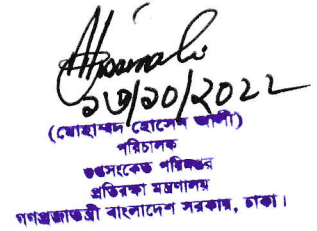 ১৩/১০/২০২২
(মোহাম্মদ হোসেন আলী)
পরিচালক
গুপ্তসংকেত পরিদপ্তর
প্রতিরক্ষা মন্ত্রণালয়
গণপ্রজাতন্ত্রী বাংলাদেশ সরকার, ঢাকা।